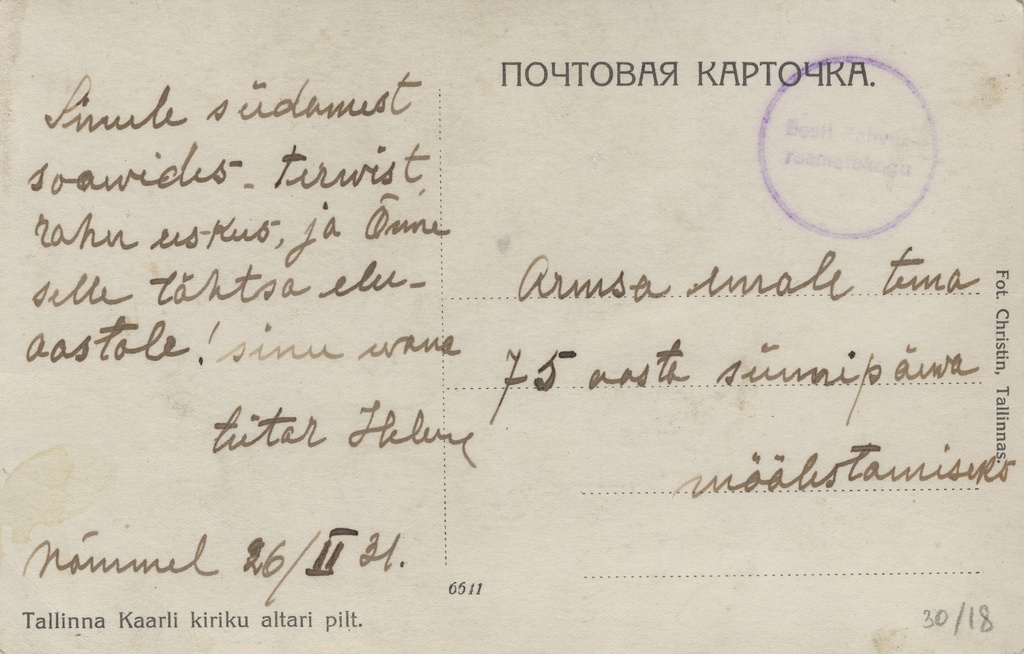 ПОЧТОВАЯ КАРТОЧКА.
Eesti Rahvus-
raamatukogu
Sinule südamest
soawides - terwist,
rahu uskus, ja Õnne
selle tähtsa elu-
aastale! sinu wana
tütar Helene
Nõmmel 26/II 31.
Tallinna Kaarli kiriku altari pilt.
6511
Armsa emale tema
75 aasta sünnipäewa
määlestamiseks
Fot. Christin, Tallinnas.
30/18